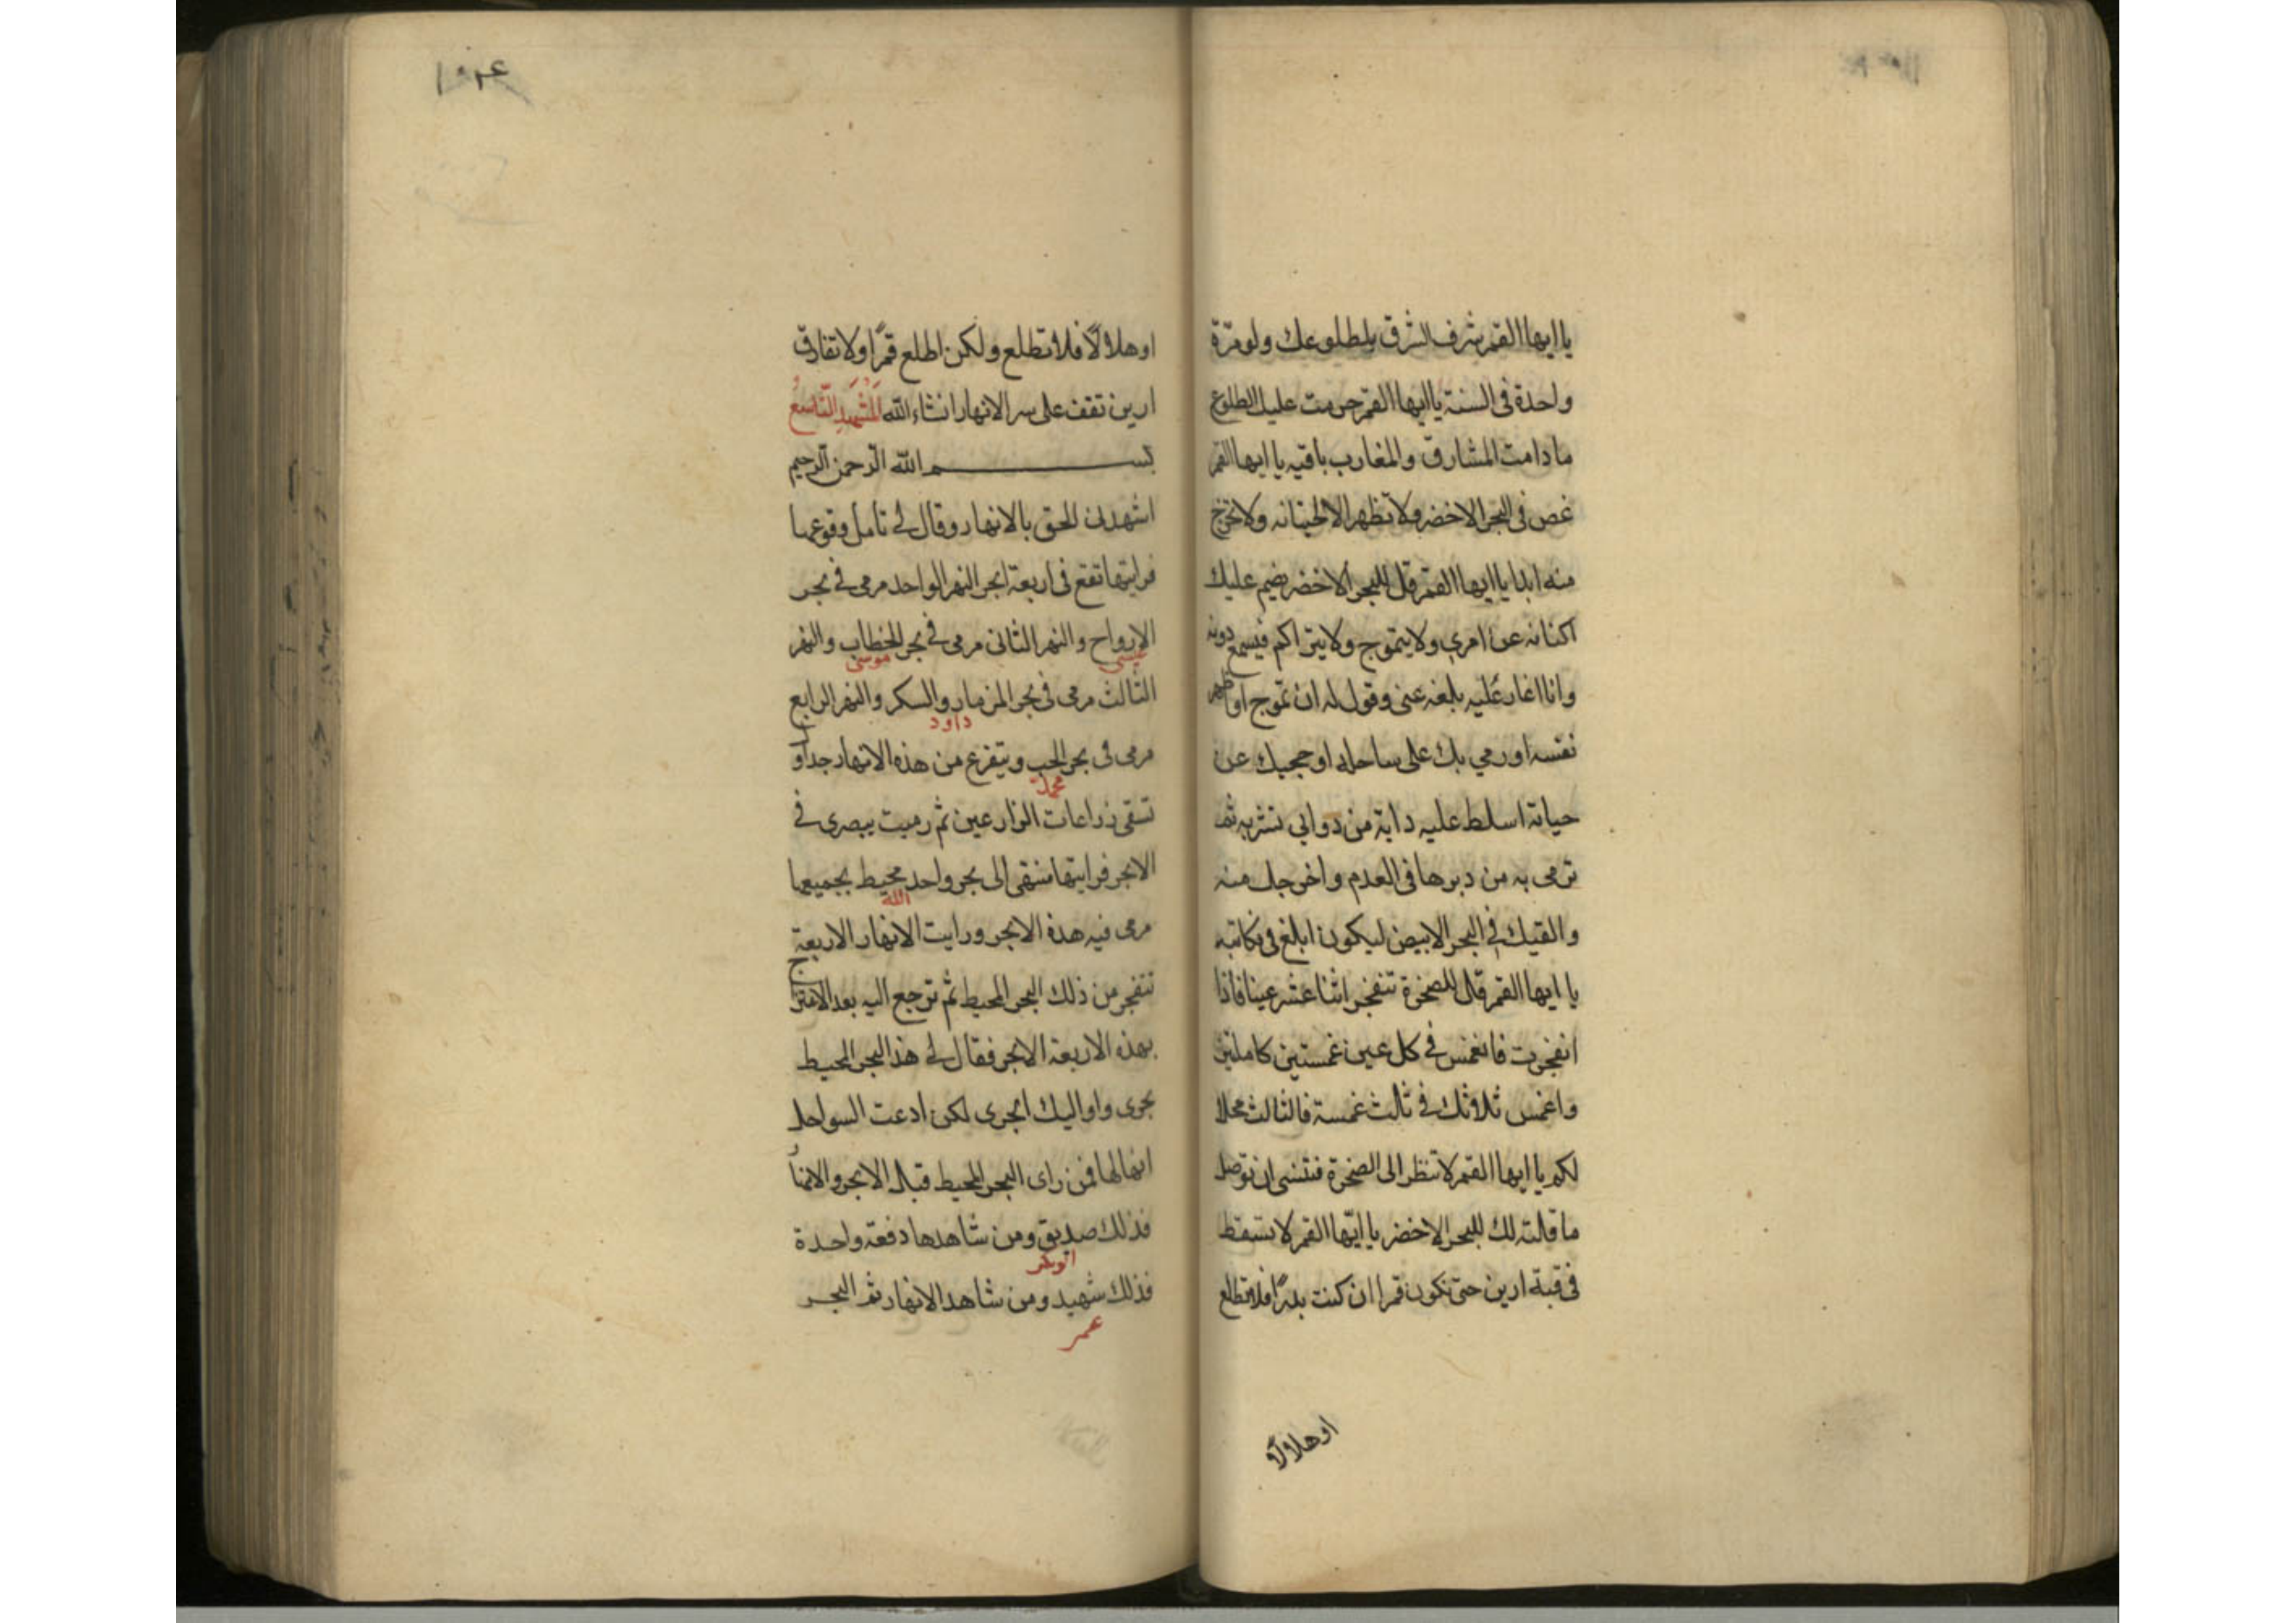 يا ايها القمر شرف الشرق بطلوعك ولو مرّة
واحدة فى السنة يا ايها القمر حرمت عليك الطلوع
ما دامت المشارق والمغارب باقيه يا ايها القمر
غص فى البحر الاخضر ولا تظهر الا لحيتانه ولا تخرج
منه ابدا يا ايها القمر قل للبحر الاخضر يضم عليك
اكنانه عن امرى ولا يتموج ولا يتراكم فيسمع دونه
وانا اغار عليه بلغه عنى وقول له ان تموج او ظهر
نفسه او رمي بك على ساحله او حجبك عن
حياته اسلط عليه دابة من دوابي تشربه ثم
ترمى به من دبرها فى العدم واخرجك منه
والقيك فى البحر الابيض ليكون ابلغ فى نكايته
يا ايها القمر قال للصخرة تنفجر اثنا عشر عينا فاذا
انفجرت فانغمس فى كل عين غمستين كاملتين
واغمس ثلاثك فى ثالث غمسة فالثالث محلا
لكم يا ايها القمر لا تنظر الى الصخرة فتنسى ان توصل
ما قالته لك للبحر الاخضر يا ايّها القمر لا تسقط
فى قبة ارين حتى تكون قمرا ان كنت بدرًا فلا تطلع
اوهلالًا
١٠٢٤
اوهلالًا فلا تطلع ولكن اطلع قمرًا ولا تفارق
ارين تقف على سر الانهار انشاء الله المشهد التاسع
بسم الله الرّحمن الرّحيم
اشهدنى الحق بالانهار وقال لى تامل وقوعها
فرايتها تقع فى اربعة ابحر النهر الواحد مرمى فى بحر
الارواح والنهر الثانى مرمى فى بحر الخطاب والنهر
عيسى موسى
الثالث مرمى فى بحر المزمار والسكر والنهر الرابع
داود
مرمى فى بحر الحب ويتفرع من هذه الانهار جداول
محمد
تسقى زراعات الزارعين ثم رميت ببصرى فى
الابحر فرايتها تنتهى الى بحر واحد محيط بجميعها
الله
مرمى فيه هذه الابحر ورايت الانهار الاربعة
تنفجر من ذلك البحر المحيط ثم ترجع اليه بعد الامتزاج
بهذه الاربعة الابحر فقال لى هذا البحر المحيط
بحرى واواليك ابحرى لكن ادعت السواحل
انها لها فمن راى البحر المحيط قبل الابحر والانهار
فذلك صديق ومن شاهدها دفعة واحدة
ابو بكر
فذلك شهيد ومن شاهد الانهار ثم البحر
عمر